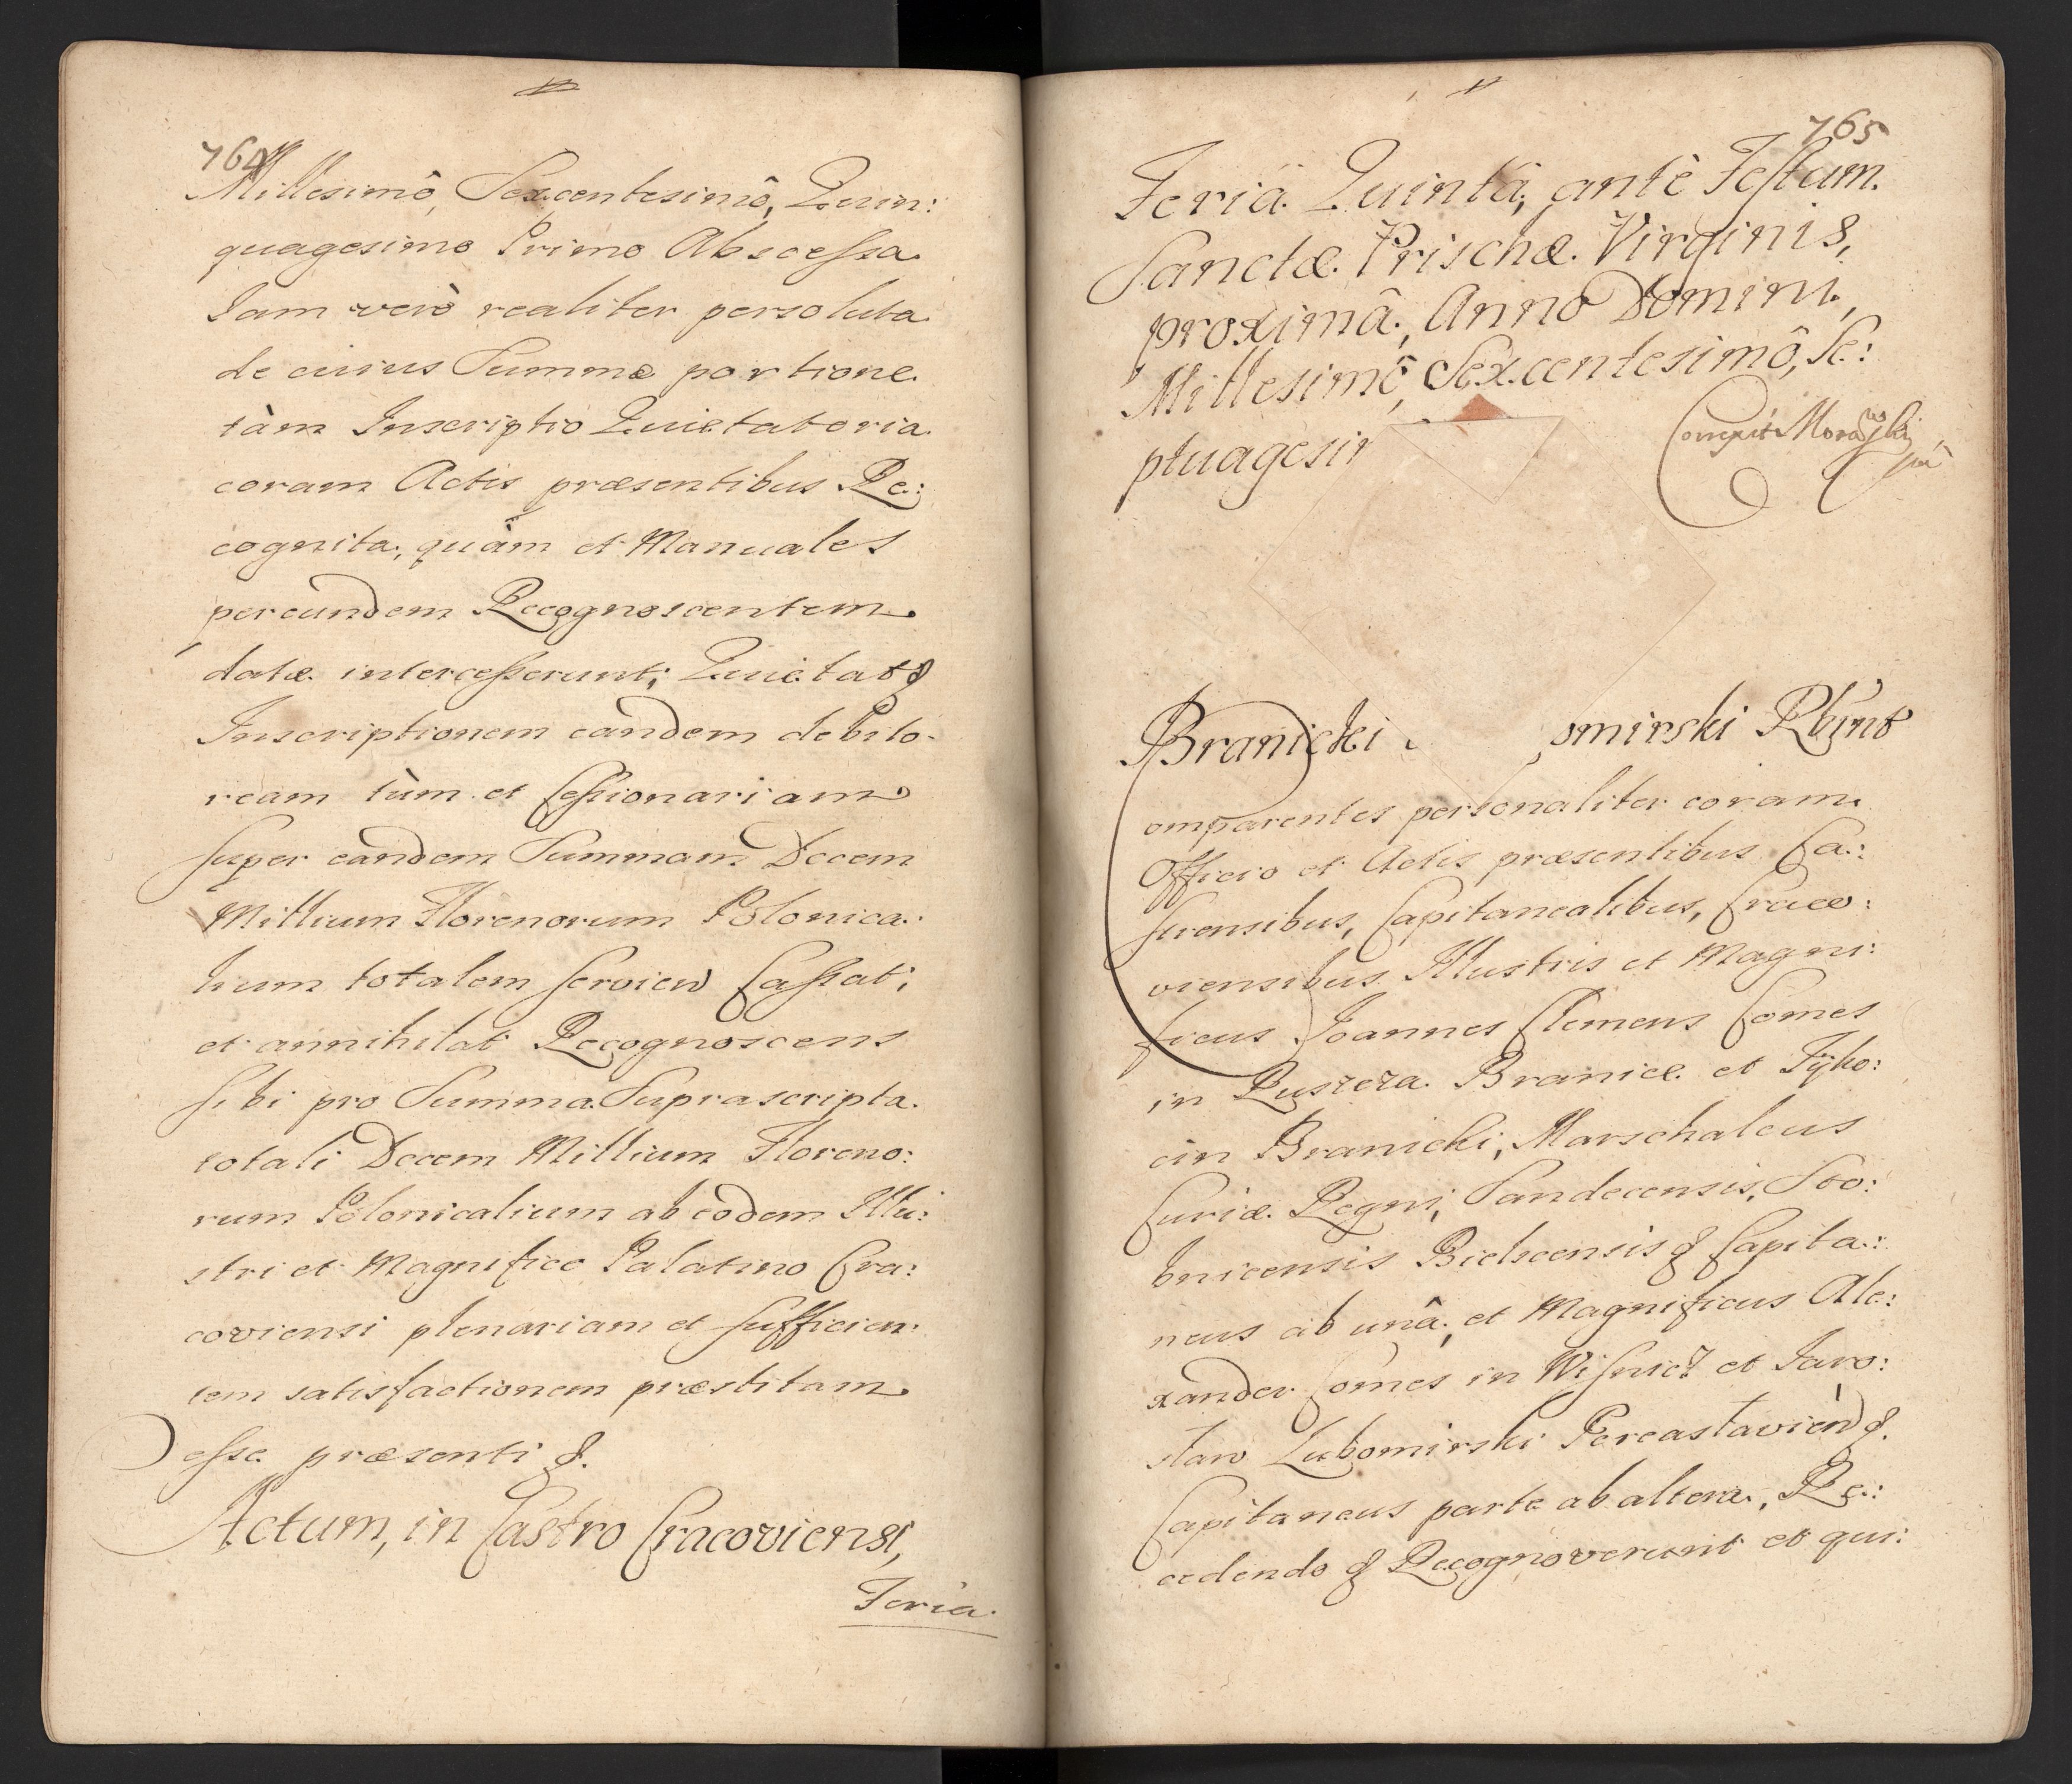 764
Millesimô, Sexcentesimô, Quin:
quagesimo Primo Abscessa
Iam verò realiter persoluta
de cuius Summæ portione
tàm Inscriptio Quietatoria
coram Actis præsentibus Re:
cognita, quàm et Manuales
per eundem Recognoscentem
datæ intercesserunt; Quietatq
Inscriptionem eandem debito-
ream tùm et Cessionariam
super eandem Summam Decem
Millium Florenorum Polonica:
lium totalem servien Cassat;
et annihilat Recognoscens
sibi pro Summa Suprascripta
totali Decem Millium Floreno:
rum Polonicalium ab eodem Illu:
stri et Magnifico Palatino Cra:
coviensi plenariam et sufficien:
tem satisfactionem præstitam
esse præsenti &.
Actum, in Castro Cracoviensi,
Feria
765
Feriâ Quintâ, antè Festum
Sanctæ Prischæ Virginis,
proximâ, Anno Domini,
Millesimô, Sexcentesimô, Se:
ptuagesim
Correxit Morawski
Branicki omirski Rbunt
omparentes personaliter coram
Officio et Actis præsentibus Ca:
strensibus, Capitanealibus, Craco:
viensibus Illustris et Magni:
ficus Joannes Clemens Comes
in Ruszcza Branice et Tyko:
cin Branicki, Marschalcus
Curiæ Regni, Sandecensis, Sto:
bnicensis Bielscensis & Capita:
neus ab unâ, et Magnificus Ale:
xander Comes in Wisnicz et Jaro:
slaw Lubomirski Pereaslavien &.
Capitaneus parte ab altera, Re:
cedendo & Recognoverunt et qui: